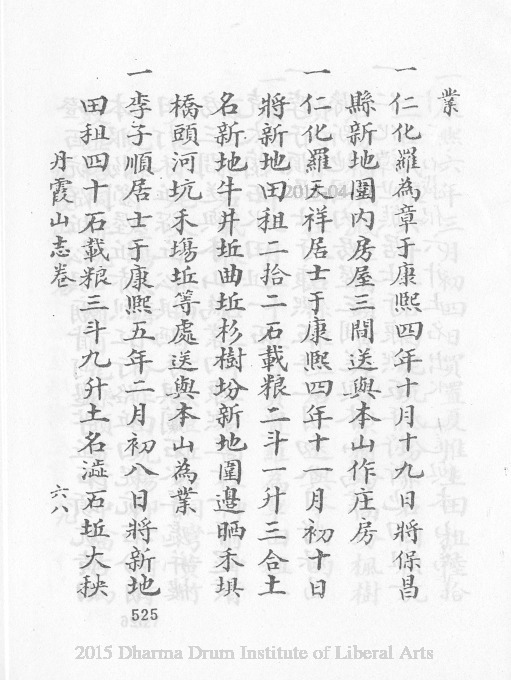 業
一仁化羅為章于康熙四年十月十九日將保昌
縣新地圍內房屋三間送與本山作庄房
一仁化羅天祥居士于康熙四年十一月初十日
將新地田租二拾二石載粮二斗一升三合土
名新地牛井坵曲坵杉樹坋新地圍邊晒禾埧
橋頭河坑禾塲坵等處送與本山為業
一李子順居士于康熙五年二月初八日將新地
田租四十石載粮三斗九升土名澁石坵大秧
丹霞山志卷 六八
525
2015 Dharma Drum Institute of Liberal Arts